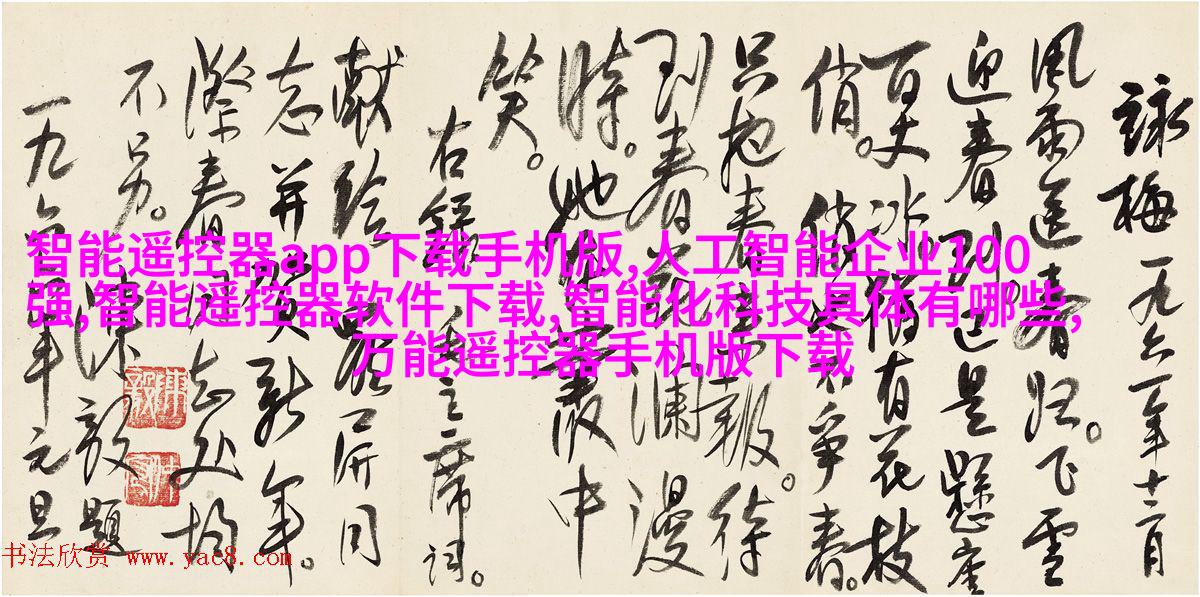 詠梅 一九六一年十二月
風雨送春歸。飞雪
迎春到。已是懸崖
百丈冰。猶有花枝
俏。俏也不爭春。
只把春来報。待
到春花瀾漫
時。她在叢中
笑。
右錄毛主席词。
献给屏同
志并贺新年。
際春同志处均
不另。陳毅題
一九六二年元旦
智能遥控器app下载手机版,人工智能企业100
强,智能遥控器软件下载,智能化科技具体有哪些,
万能遥控器手机版下载
书法欣赏 www.yac8.com